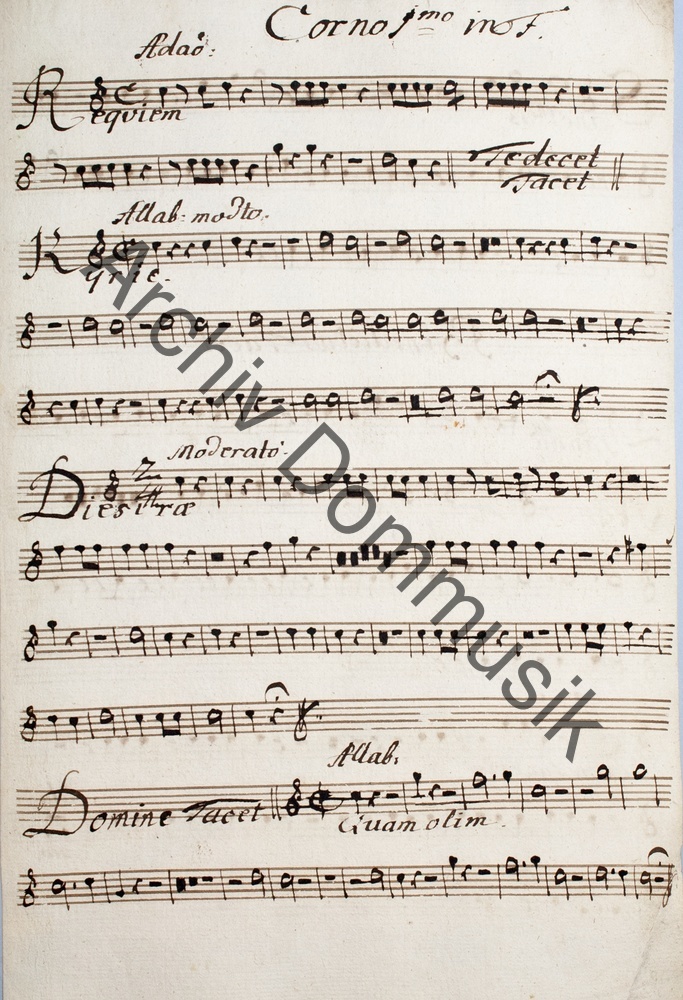 Corno 1mo in F.
Adaō:
Requiem
Te decet
Tacet
Allab: modto.
Kyrie.
Moderato.
Dies iræ
Allab:
Domine Tacet
Quam olim.
Archiv Dommusik